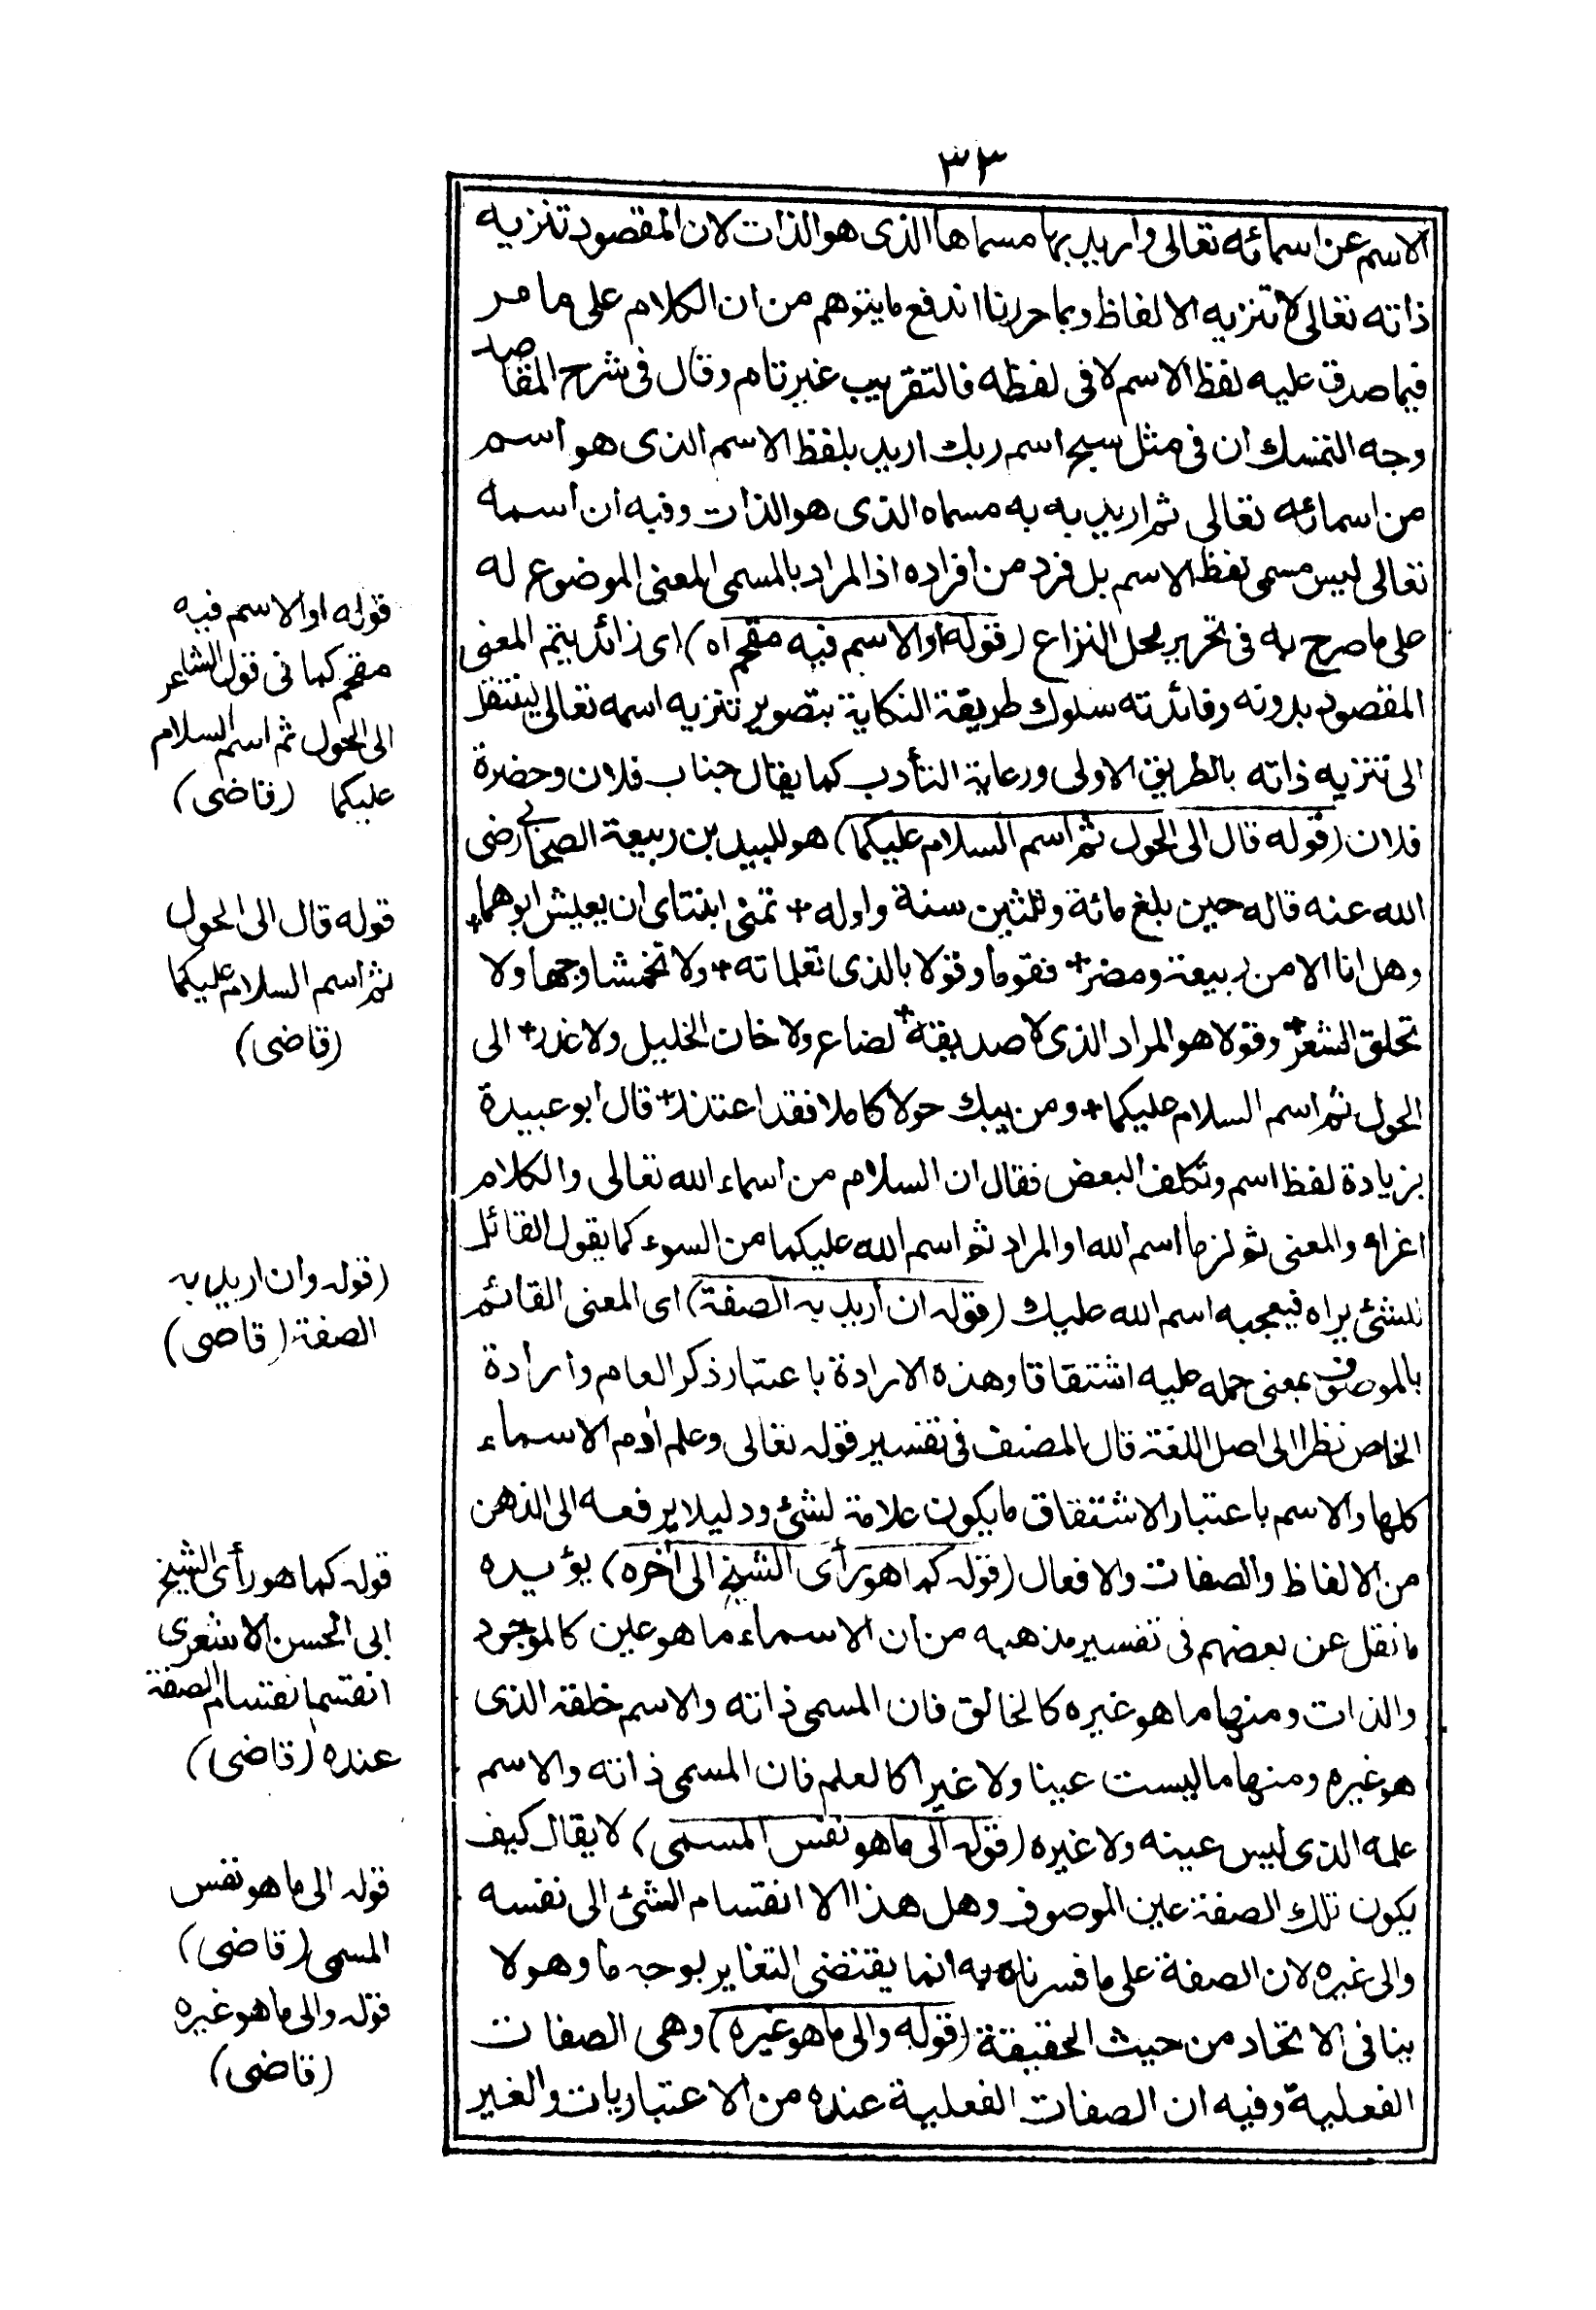 ٣٣
الاسم عن اسمائه تعالى واريد بها مسماها الذى هو الذات لان المقصود تنزيه
ذاته تعالى لا تنزيه الالفاظ وبما حررنا اندفع ما يتوهم من ان الكلام على ما مر
فيما صدق عليه لفظ الاسم لا فى لفظه فالتقريب غير تام وقال فى شرح المقاصد
وجه التمسك ان فى مثل سبح اسم ربك اريد بلفظ الاسم الذى هو اسم
من اسمائه تعالى ثم اريد به به مسماه الذى هو الذات وفيه ان اسمه
تعالى ليس مسمى لفظ الاسم بل فرد من افراده اذ المراد بالمسمى المعنى الموضوع له
على ما صرح به فى تحرير محل النزاع (قوله او الاسم فيه مقحم اه) اى زائد يتم المعنى
المقصود بدونه وفائدته سلوك طريقة الكناية بتصوير تنزيه اسمه تعالى لينتقل
الى تنزيه ذاته بالطريق الاولى ورعاية التأدب كما يقال جناب فلان وحضرة
فلان (قوله قال الى الحول ثم اسم السلام عليكما) هو للبيد بن ربيعة الصحابى رضى
الله عنه قاله حين بلغ مائة وثلثين سنة واوله + تمنى ابنتاى ان يعيش ابوهما +
وهل انا الا من ربيعة ومضر + فقوما وقولا بالذى تعلماته + ولا تخمشا وجها ولا
تحلق الشعر + وقولا هو المراد الذى لا صديقه + لضاع ولا خان الخليل ولا غدر + الى
الحول ثم اسم السلام عليكما + ومن يبك حولا كاملا فقد اعتذر + قال ابو عبيدة
بزيادة لفظ اسم وتكلف البعض فقال ان السلام من اسماء الله تعالى والكلام
اغراء والمعنى ثم لزما اسم الله او المراد ثم اسم الله عليكما من السوء كما يقول القائل
للشئ يراه فيعجبه اسم الله عليك (قوله ان أريد به الصفة) اى المعنى القائم
بالموصوف بمعنى حمله عليه اشتقاقا وهذه الارادة باعتبار ذكر العام وارادة
الخاص نظرا الى اصل اللغة قال المصنف فى تفسير قوله تعالى وعلم أدم الاسماء
كلها والاسم باعتبار الاشتقاق ما يكون علامة لشئ ودليلا يرفعه الى الذهن
من الالفاظ والصفات والافعال (قوله كما هو رأى الشيخ الى أخره) يؤيده
ما نقل عن بعضهم فى تفسير مذهبه من ان الاسماء ما هو عين كالموجود
والذات ومنها ما هو غيره كالخالق فان المسمى ذاته والاسم خلقه الذى
هو غيره ومنها ما ليست عينا ولا غيرا كالعلم فان المسمى ذاته والاسم
علمه الذى ليس عينه ولا غيره (قوله الى ما هو نفس المسمى) لا يقال كيف
يكون تلك الصفة عين الموصوف وهل هذا الا انقسام الشئ الى نفسه
والى غيره لان الصفة على ما فسرناه به انما يقتضى التغاير بوجه ما وهو لا
ينافى الاتحاد من حيث الحقيقة (قوله والى ما هو غيره) وهى الصفات
الفعلية وفيه ان الصفات الفعلية عنده من الاعتباريات والغير
قوله او الاسم فيه
مقحم كما فى قول الشاعر
الى الحول ثم اسم السلام
عليكما (قاضى)
قوله قال الى الحول
ثم اسم السلام عليكما
(قاضى)
(قوله وان اريد به
الصفة (قاضى)
قوله كما هو رأى الشيخ
ابى الحسن الاشعرى
انقسم انقسام الصفة
عنده (قاضى)
قوله الى ما هو نفس
المسمى (قاضى)
قوله والى ما هو غيره
(قاضى)